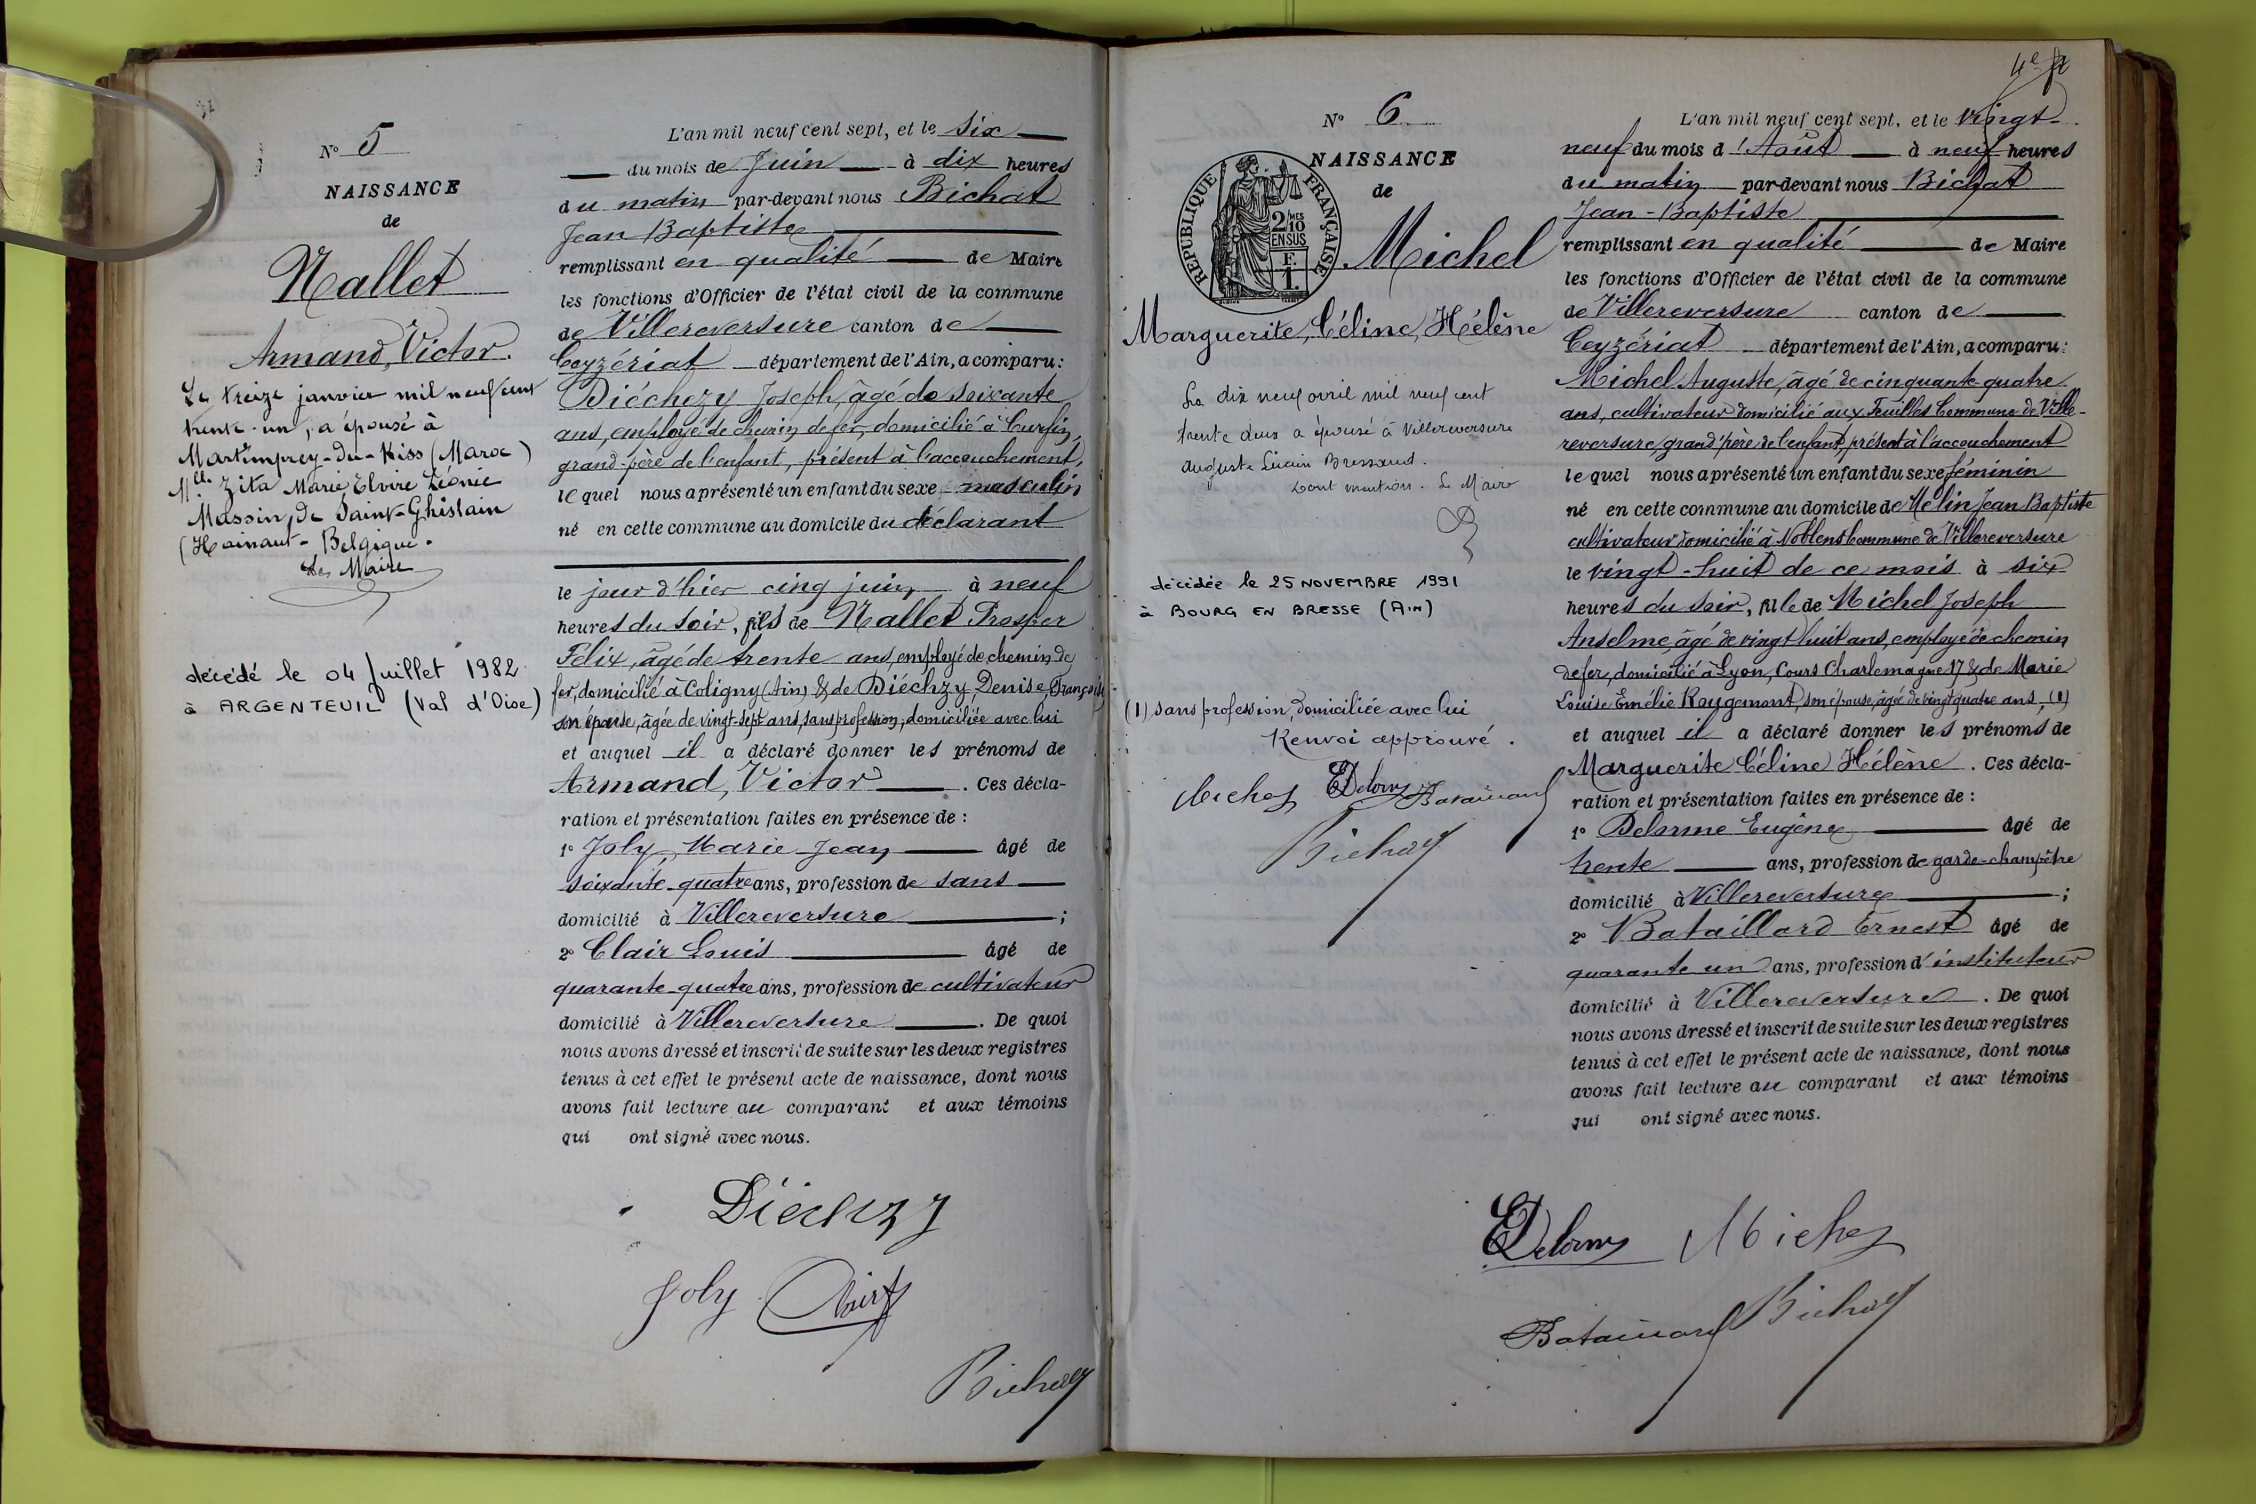 N° 5
NAISSANCE
de
Nallet
Armand, Victor.
Le treize janvier mil neuf cent
trente-un, a épousé à
Martimprey-du-Kiss (Maroc)
Mlle Zita Marie Elvire Léonie
Massin, de Saint-Ghislain
(Hainaut - Belgique.
Le Maire
décédé le 04 Juillet 1982
à ARGENTEUIL (Val d'Oise)
L'an mil neuf cent sept, et le six
du mois de Juin à dix heures
du matin par-devant nous Bichat
Jean Baptiste
remplissant en qualité de Maire
les fonctions d'Officier de l'état civil de la commune
de Villereversure canton de
Ceyzériat département de l'Ain, a comparu :
Diéchzy Joseph, âgé de soixante
ans, employé de chemin de fer, domicilié à Curfin,
grand-père de l'enfant, présent à l'accouchement,
lequel nous a présenté un enfant du sexe masculin
né en cette commune au domicile du déclarant
le jour d'hier cinq juin, à neuf
heures du soir, fils de Nallet Prosper
Félix, âgé de trente ans, employé de chemin de
fer, domicilié à Coligny (Ain) & de Diéchzy Denise Françoise
son épouse, âgée de vingt-sept ans, sans profession, domiciliée avec lui
et auquel il a déclaré donner les prénoms de
Armand, Victor . Ces décla-
ration et présentation faites en présence de :
1° Joly, Marie Jean âgé de
soixante-quatre ans, profession de sans
domicilié à Villereversure ;
2° Clair Louis âgé de
quarante-quatre ans, profession de cultivateur
domicilié à Villereversure . De quoi
nous avons dressé et inscrit de suite sur les deux registres
tenus à cet effet le présent acte de naissance, dont nous
avons fait lecture au comparant et aux témoins
qui ont signé avec nous.
Diéchzy
Joly Clair
Bichat
N° 6
NAISSANCE
de
REPUBLIQUE FRANÇAISE
2/10 MES
EN SUS
F.
1.
Michel
Marguerite, Céline, Hélène
Le dix neuf avril mil neuf cent
trente deux a épousé à Villereversure
Auguste Lucien Bressand.
Dont mention. Le Maire
décédée le 25 NOVEMBRE 1991
à BOURG EN BRESSE (AIN)
(1) sans profession, domiciliée avec lui
Renvoi approuvé.
Michel EDelorme Bataillard
Bichat
L'an mil neuf cent sept, et le vingt-
neuf du mois d'Août à neuf heures
du matin par-devant nous Bichat
Jean-Baptiste
remplissant en qualité de Maire
les fonctions d'Officier de l'état civil de la commune
de Villereversure canton de
Ceyzériat département de l'Ain, a comparu :
Michel Auguste, âgé de cinquante-quatre
ans, cultivateur domicilié aux Feuilles Commune de Ville-
reversure, grand'père de l'enfant, présent à l'accouchement
lequel nous a présenté un enfant du sexe féminin
né en cette commune au domicile de Mélin Jean Baptiste
cultivateur domicilié à Noblens Commune de Villereversure
le vingt-huit de ce mois à six
heures du soir, fille de Michel Joseph
Anselme, âgé de vingt huit ans, employé de chemin
de fer, domicilié à Lyon, Cours Charlemagne 17 & de Marie
Louise Emélie Rougemont, son épouse, âgée de vingt quatre ans, (1)
et auquel il a déclaré donner les prénoms de
Marguerite Céline Hélène . Ces décla-
ration et présentation faites en présence de :
1° Delorme Eugène âgé de
trente ans, profession de garde-champêtre
domicilié à Villereversure ;
2° Bataillard Ernest âgé de
quarante un ans, profession d'instituteur
domicilié à Villereversure . De quoi
nous avons dressé et inscrit de suite sur les deux registres
tenus à cet effet le présent acte de naissance, dont nous
avons fait lecture au comparant et aux témoins
qui ont signé avec nous.
EDelorme Michel
Bataillard Bichat